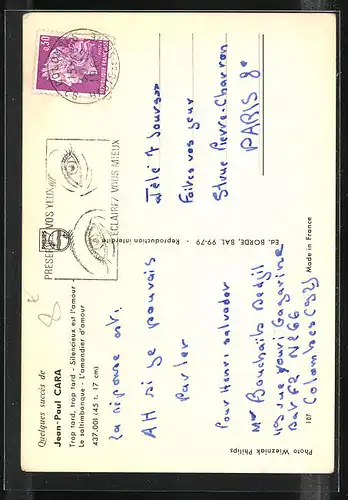 Quelques succès de
Jean-Paul CARA
Trop tard, trop tard - Silencieux est l'amour
Le saltimbanque - L'amandier d'amour
437.001 (45 t. 17 cm)
La réponse est.
AH si je pouvais
Parler
Pour Henri Salvador
Mr Bouchaib Dedjil
rue Youri Gagarine
Bat F2 N266
Colombes (92)
PRESERVEZ VOS YEUX
ECLAIREZ VOUS MIEUX
PHILIPS
0,30
REPUBLIQUE FRANCAISE
Télé 7 Jours
Faites vos jeux
5 rue Pierre-Charron
PARIS 8e
Ed. BORDE, BAL. 99-79 - Reproduction interdite
Photo Wiezniak Philips
107 Made in France